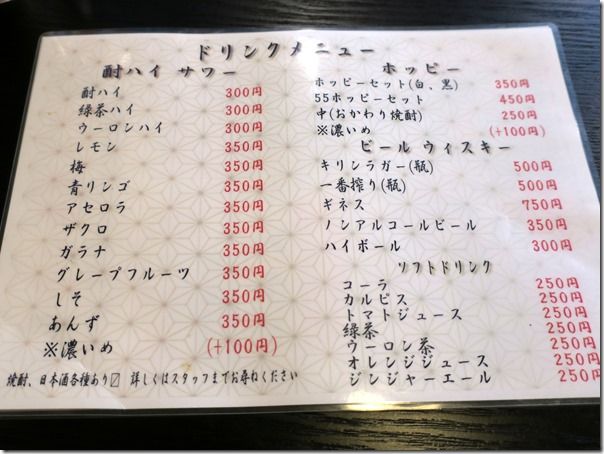 ドリンクメニュー
酎ハイ サワー
酎ハイ 300円
緑茶ハイ 300円
ウーロンハイ 300円
レモン 350円
梅 350円
青リンゴ 350円
アセロラ 350円
ザクロ 350円
ガラナ 350円
グレープフルーツ 350円
しそ 350円
あんず 350円
※濃いめ (+100円)
焼酎、日本酒各種あり〼 詳しくはスタッフまでお尋ねください
ホッピー
ホッピーセット(白、黒) 350円
55ホッピーセット 450円
中(おかわり焼酎) 250円
※濃いめ (+100円)
ビール ウィスキー
キリンラガー(瓶) 500円
一番搾り(瓶) 500円
ギネス 750円
ノンアルコールビール 350円
ハイボール 300円
ソフトドリンク
コーラ 250円
カルピス 250円
トマトジュース 250円
緑茶 250円
ウーロン茶 250円
オレンジジュース 250円
ジンジャーエール 250円